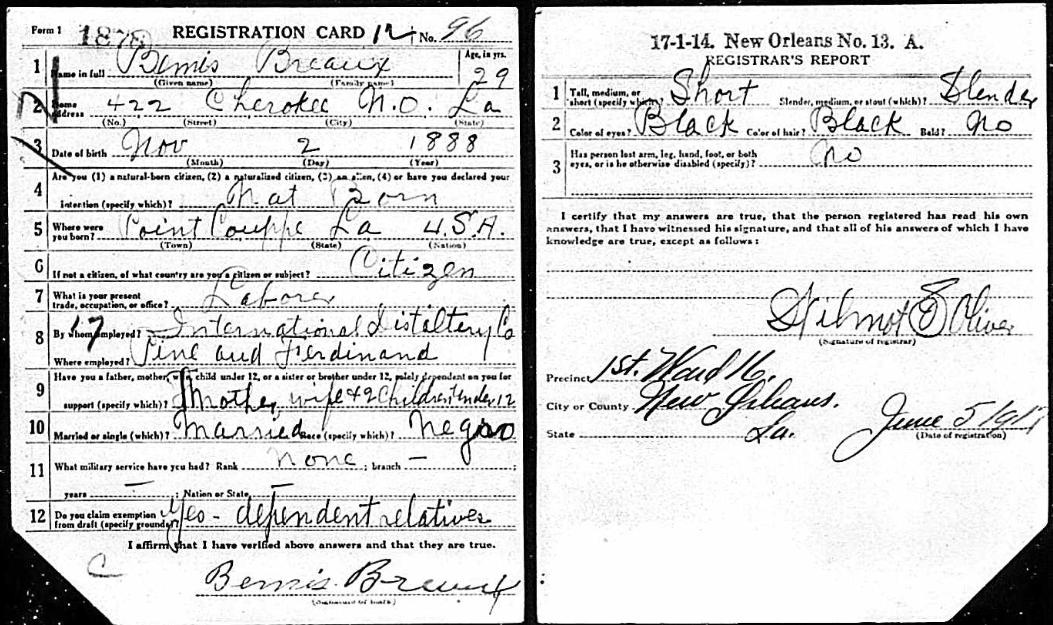 Form 1 1878 REGISTRATION CARD 12 No. 96
1 Name in full Bemis Breaux Age, in yrs. 29
(Given name) (Family name)
2 Home address 422 Cherokee N.O. La
(No.) (Street) (City) (State)
3 Date of birth Nov 2 1888
(Month) (Day) (Year)
4 Are you (1) a natural-born citizen, (2) a naturalized citizen, (3) an alien, (4) or have you declared your
intention (specify which)? Nat Born
5 Where were you born? Point Couppe La U.S.A.
(Town) (State) (Nation)
6 If not a citizen, of what country are you a citizen or subject? Citizen
7 What is your present trade, occupation, or office? Laborer
8 By whom employed? 17 International Distaltery Co
Where employed? Pine and Ferdinand
9 Have you a father, mother, wife, child under 12, or a sister or brother under 12, solely dependent on you for
support (specify which)? Mother, wife & 2 Children under 12
10 Married or single (which)? Married Race (specify which)? Negro
11 What military service have you had? Rank none ; branch — ;
years — ; Nation or State —
12 Do you claim exemption from draft (specify grounds)? Yes - dependent relatives
I affirm that I have verified above answers and that they are true.
C
Bemis Breaux
17-1-14. New Orleans No. 13. A.
REGISTRAR'S REPORT
1 Tall, medium, or short (specify which)? Short Slender, medium, or stout (which)? Slender
2 Color of eyes? Black Color of hair? Black Bald? No
3 Has person lost arm, leg, hand, foot, or both
eyes, or is he otherwise disabled (specify)? No
I certify that my answers are true, that the person registered has read his own
answers, that I have witnessed his signature, and that all of his answers of which I have
knowledge are true, except as follows:
Wilmot Oliver
(Signature of registrar)
Precinct 1st. Ward 16.
City or County New Orleans.
State La. June 5 1917
(Date of registration)